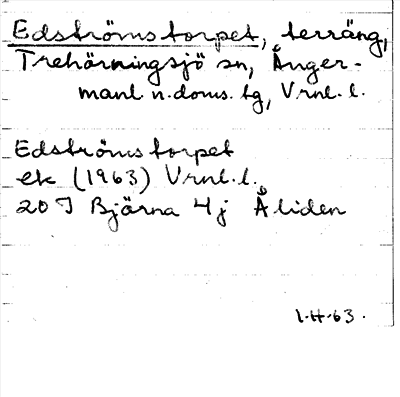 Edströms torpet, terräng,
Trehörningsjö sn, Ånger-
manl n. doms. tg, Vrnl. l.
Edströms torpet
ek (1963) Vrnl. l.
20 J Björna 4 j Åliden
1.H.63.